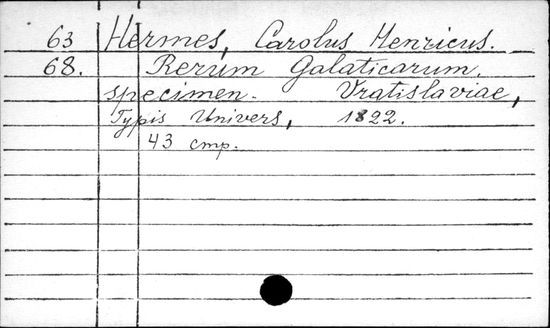 63 Hermes, Carolus Henricus.
68. Rerum Galaticarum.
specimen. Vratislaviae,
Typis Univers, 1822.
43 cmp.